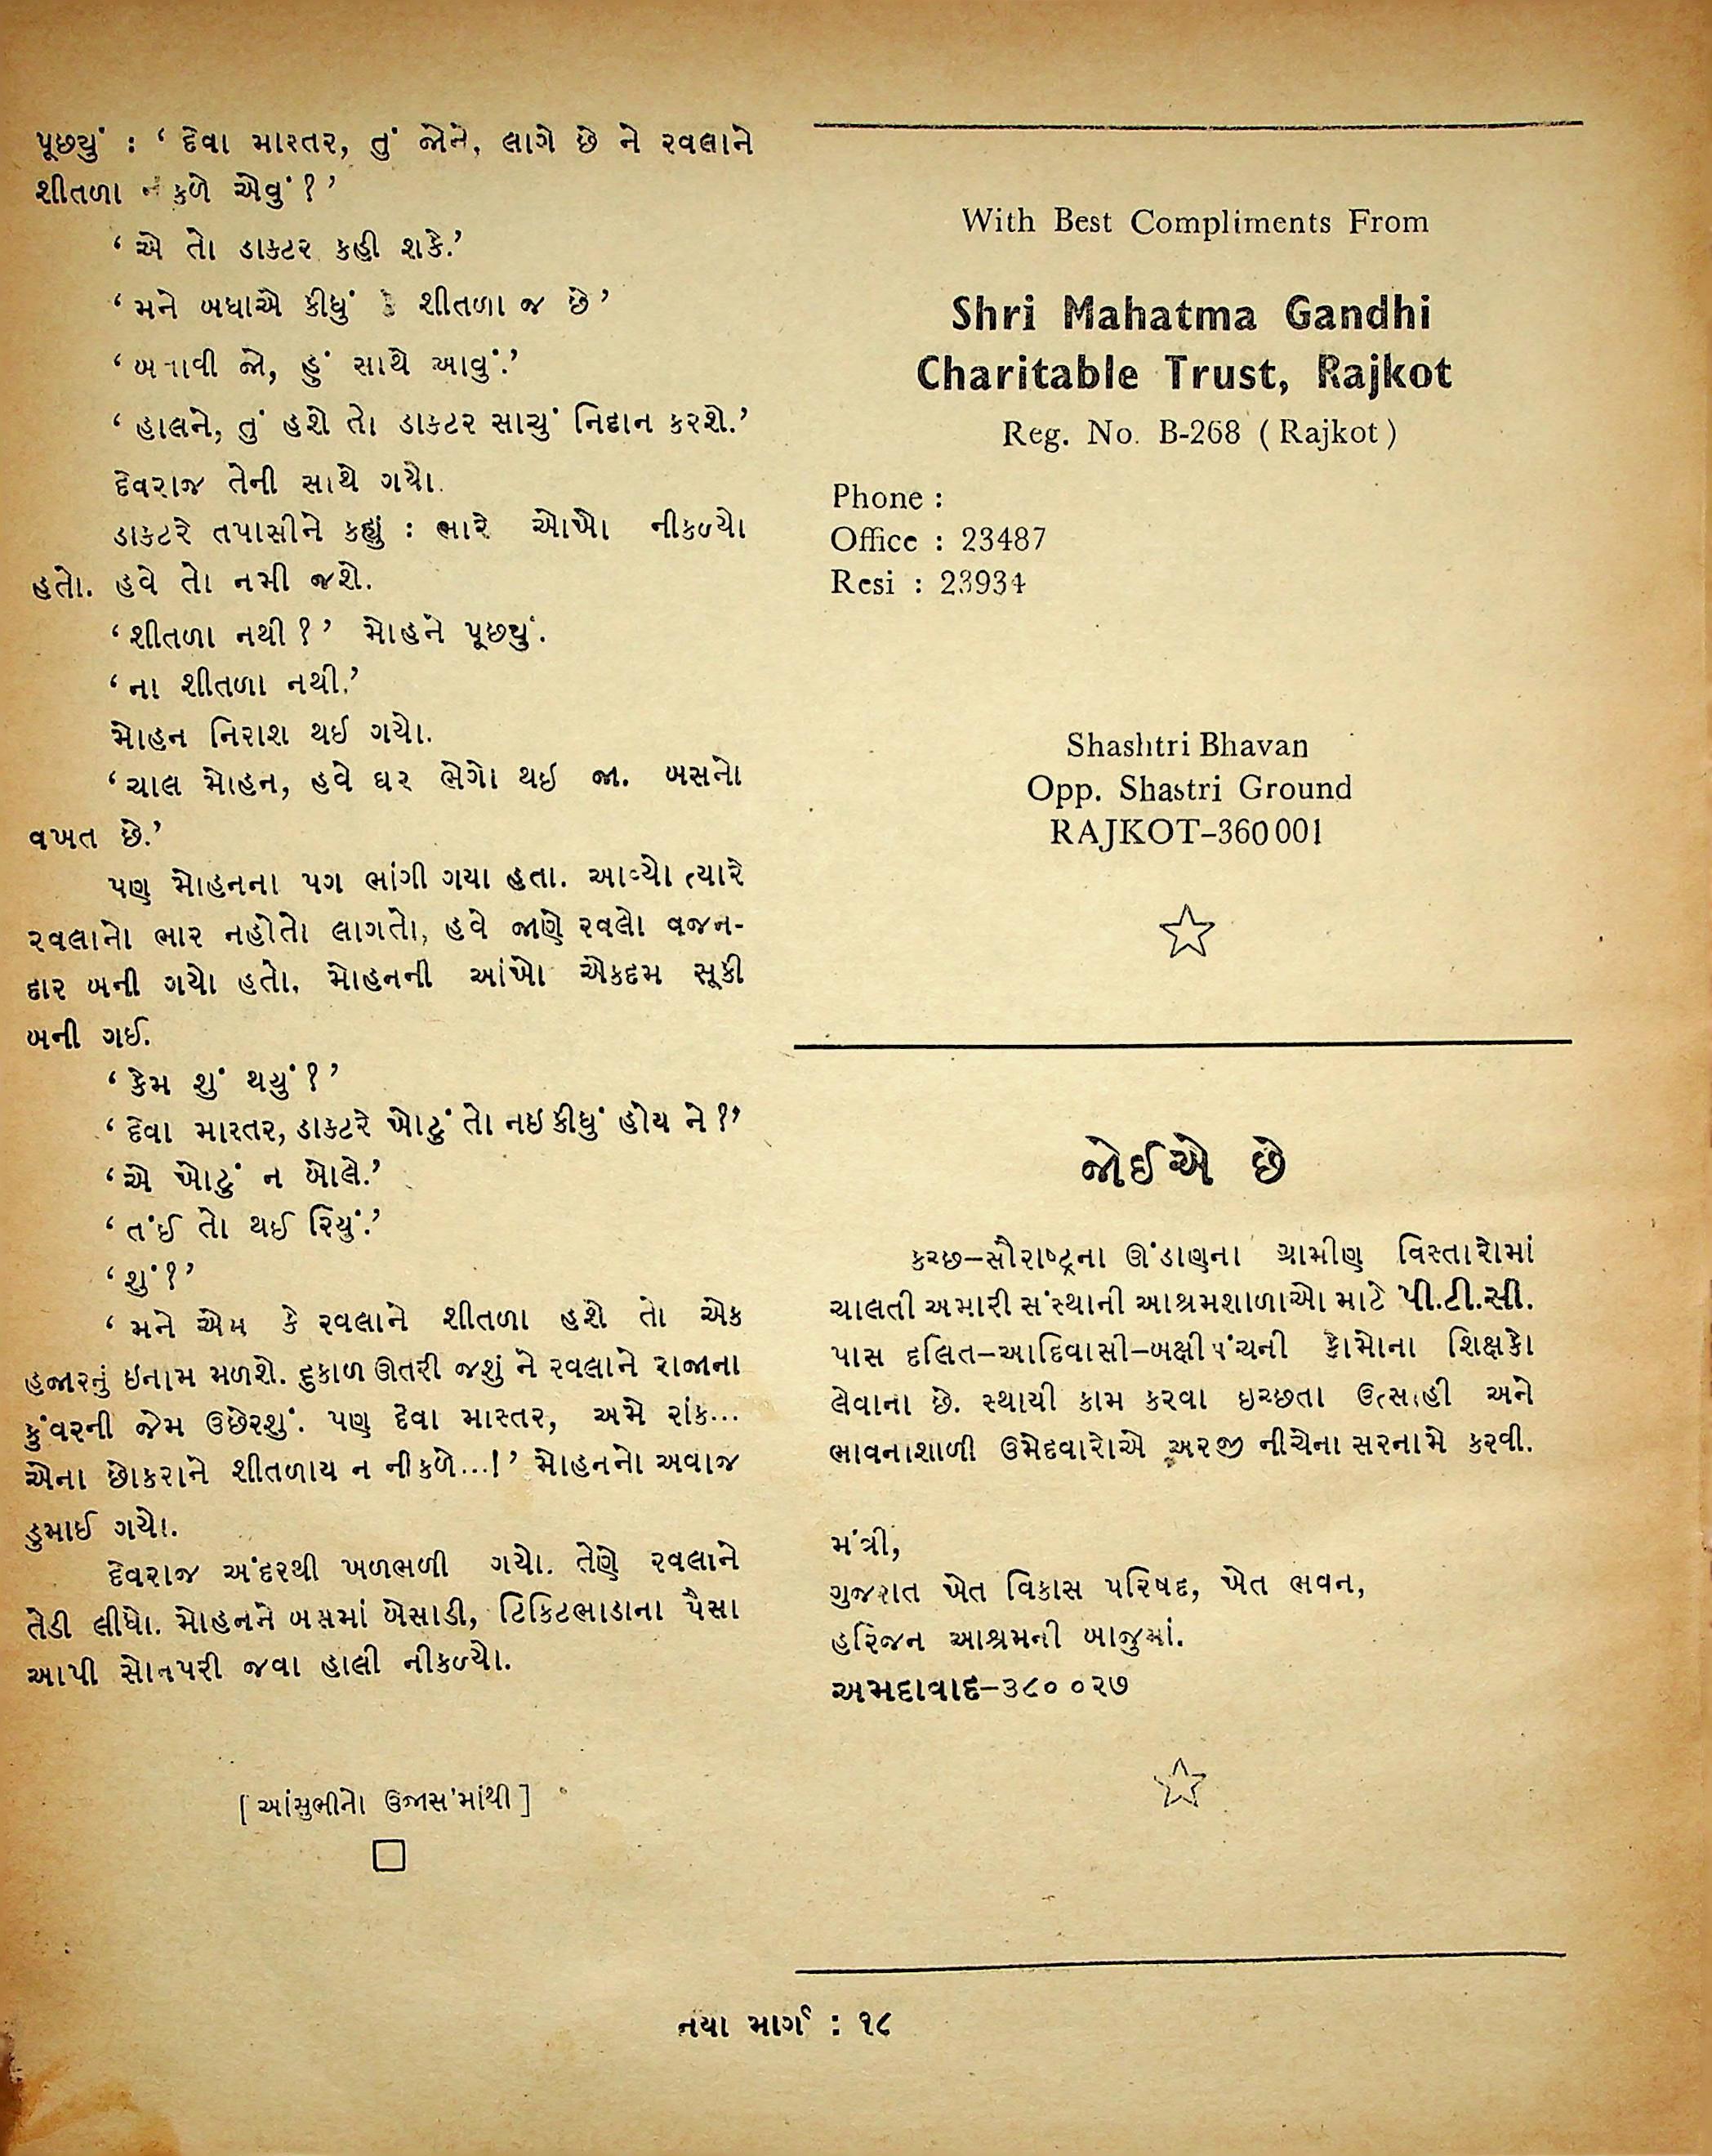 પૂછ્યું : ‘ દેવા મારતર, તું જોને, લાગે છે ને રવલાને
શીતળા નીકળે એવું ? ’
‘ એ તો ડાક્ટર કહી શકે.’
‘ મને બધાએ કીધું કે શીતળા જ છે ’
‘ બતાવી જો, હું સાથે આવું.’
‘ હાલને, તું હશે તો ડાક્ટર સાચું નિદાન કરશે.’
દેવરાજ તેની સાથે ગયો.
ડાક્ટરે તપાસીને કહ્યું : ભારે ઓખો નીકળ્યો
હતો. હવે તો નમી જશે.
‘ શીતળા નથી ? ’ મોહને પૂછ્યું.
‘ ના શીતળા નથી.’
મોહન નિરાશ થઈ ગયો.
‘ ચાલ મોહન, હવે ઘર ભેગો થઇ જા. બસનો
વખત છે.’
પણ મોહનના પગ ભાંગી ગયા હતા. આવ્યો ત્યારે
રવલાનો ભાર નહોતો લાગતો, હવે જાણે રવલો વજન-
દાર બની ગયો હતો. મોહનની આંખો એકદમ સૂકી
બની ગઈ.
‘ કેમ શું થયું ? ’
‘ દેવા મારતર, ડાક્ટરે ખોટું તો નઇ કીધું હોય ને ?’
‘ એ ખોટું ન બોલે.’
‘ તંઈ તો થઈ રિયું.’
‘ શું ? ’
‘ મને એમ કે રવલાને શીતળા હશે તો એક
હજારનું ઇનામ મળશે. દુકાળ ઊતરી જશું ને રવલાને રાજાના
કુંવરની જેમ ઉછેરશું. પણ દેવા માસ્તર, અમે રાંક...
એના છોકરાને શીતળાય ન નીકળે...! ’ મોહનનો અવાજ
ડુમાઈ ગયો.
દેવરાજ અંદરથી ખળભળી ગયો. તેણે રવલાને
તેડી લીધો. મોહનને બસમાં બેસાડી, ટિકિટભાડાના પૈસા
આપી સોનપરી જવા હાલી નીકળ્યો.
[ આંસુભીનો ઉજાસ'માંથી ]
With Best Compliments From
Shri Mahatma Gandhi
Charitable Trust, Rajkot
Reg. No. B-268 ( Rajkot )
Phone :
Office : 23487
Resi : 23934
Shashtri Bhavan
Opp. Shastri Ground
RAJKOT–360 001
જોઈએ છે
કચ્છ–સૌરાષ્ટ્રના ઊંડાણના ગ્રામીણ વિસ્તારોમાં
ચાલતી અમારી સંસ્થાની આશ્રમશાળાઓ માટે પી.ટી.સી.
પાસ દલિત–આદિવાસી–બક્ષીપંચની કોમોના શિક્ષકો
લેવાના છે. સ્થાયી કામ કરવા ઇચ્છતા ઉત્સાહી અને
ભાવનાશાળી ઉમેદવારોએ અરજી નીચેના સરનામે કરવી.
મંત્રી,
ગુજરાત ખેત વિકાસ પરિષદ, ખેત ભવન,
હરિજન આશ્રમની બાજુમાં.
અમદાવાદ–૩૮૦ ૦૨૭
નયા માર્ગ : ૧૮